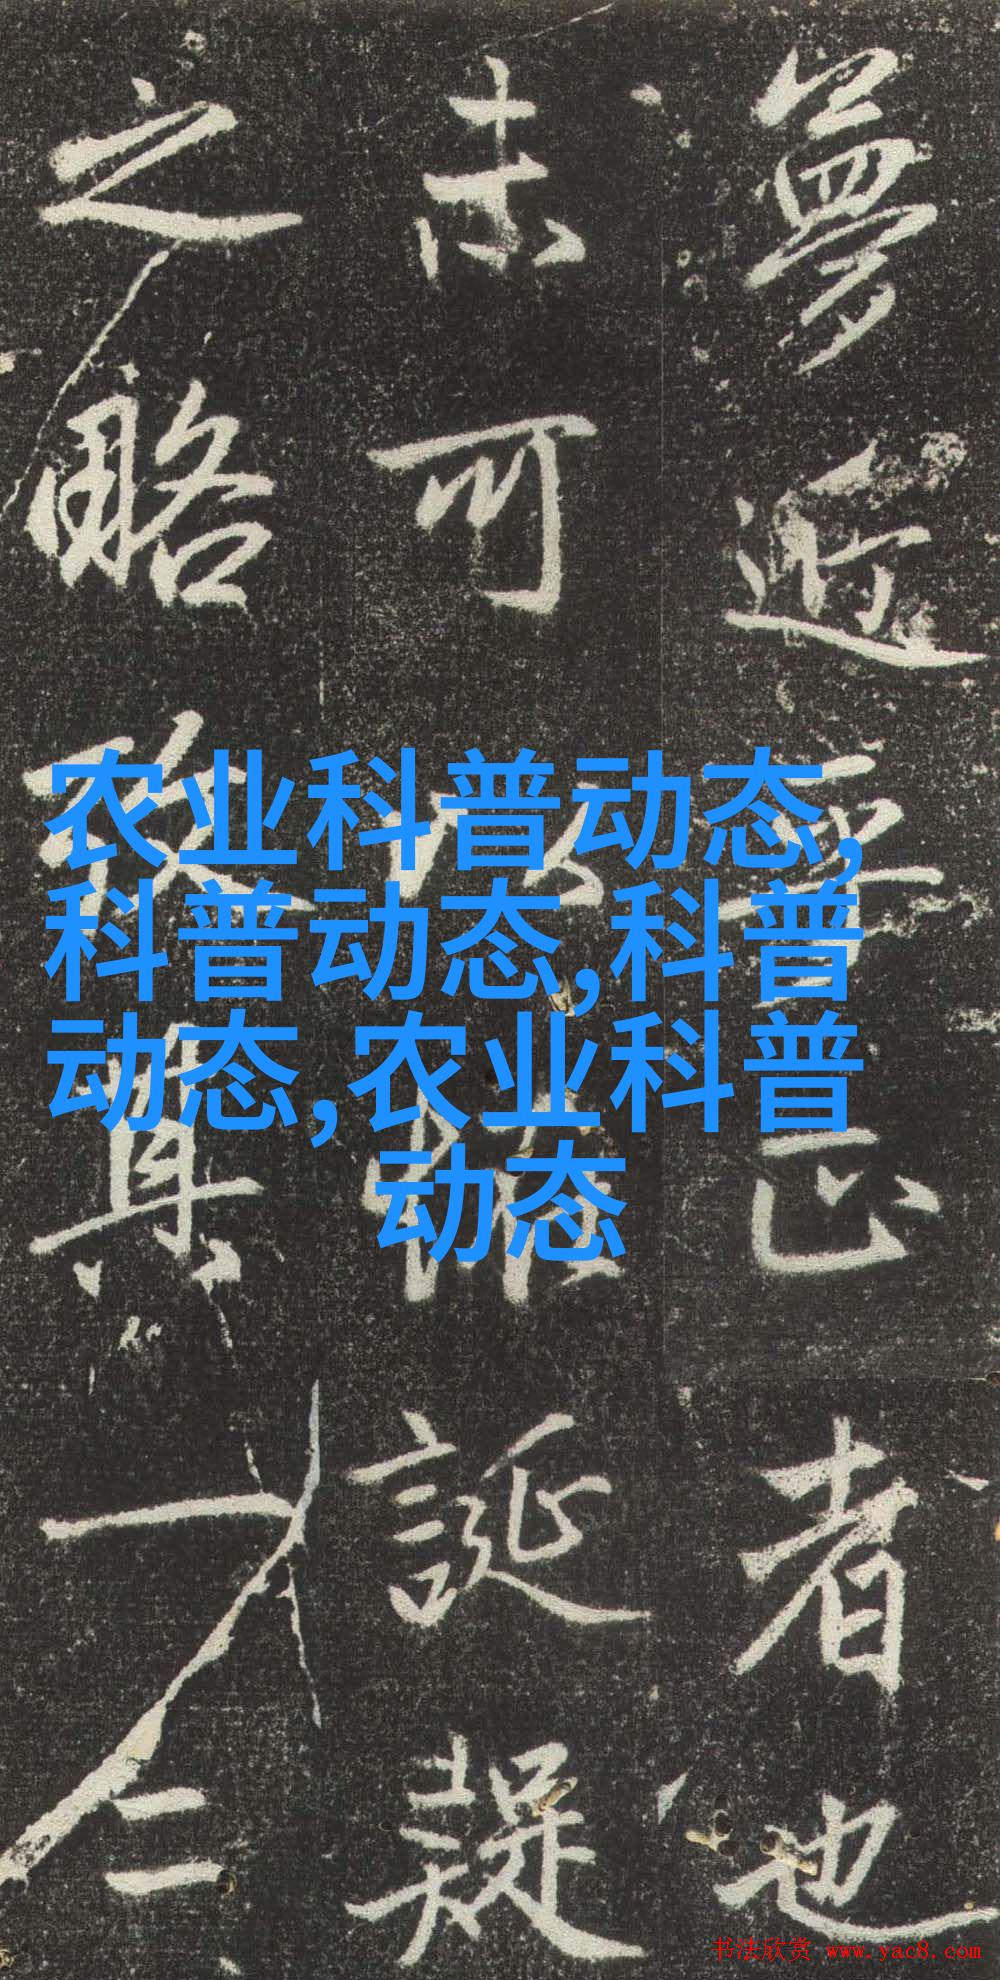 夢近正者也
未可以誕疑
之略其一二
农业科普动态,
科普动态,科普
动态,农业科普
动态
书法欣赏 www.yac8.com